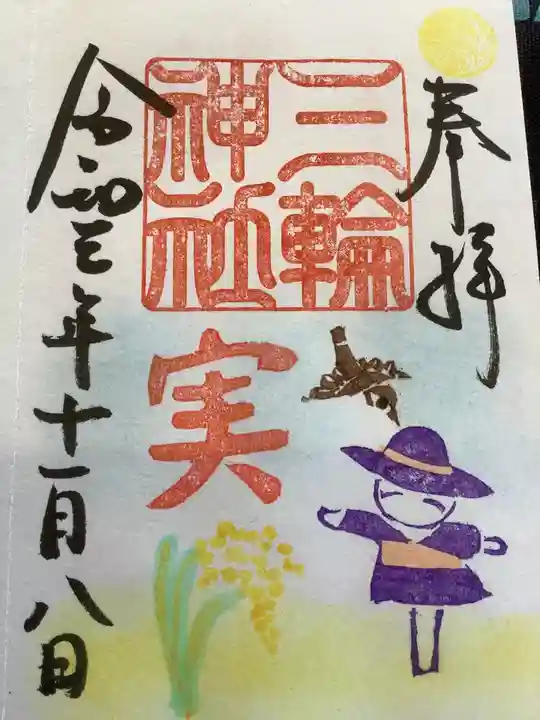 奉拝
三輪
神社
実
令和三年十一月八日